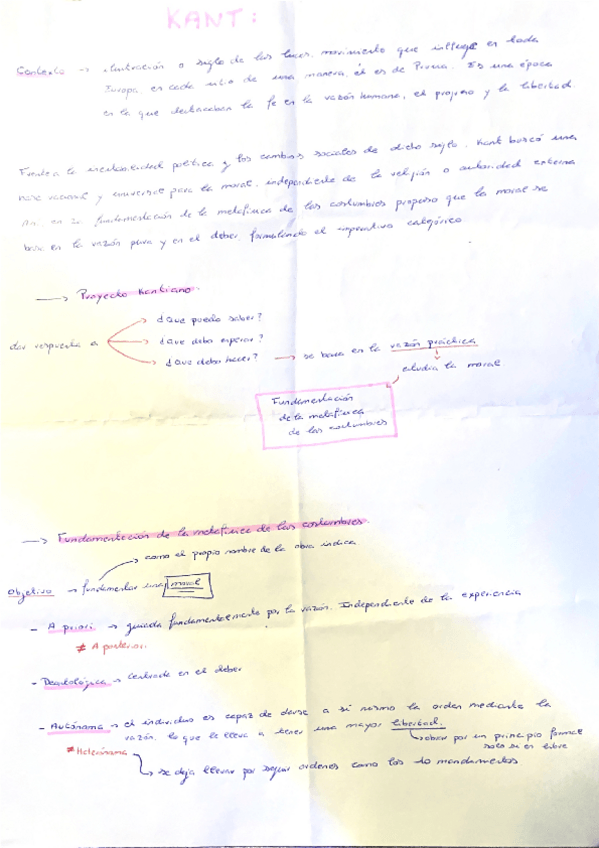 KANT:
Contexto → ilustración o siglo de las luces. movimiento que influye en toda
Europa, en cada sitio de una manera, él es de Prusia. Es una época
en la que destacaban la fe en la razón humana, el progreso y la libertad.
Frente a la inestabilidad política y los cambios sociales de dicho siglo. Kant buscó una
base racional y universal para la moral, independiente de la religión o autoridad externa
Así, en su fundamentación de la metafísica de las costumbres propuso que la moral se
base en la razón pura y en el deber, formulando el imperativo categórico
→ Proyecto Kantiano.
dar respuesta a
¿Que puedo saber?
¿Que debo esperar?
¿Que debo hacer? → se basa en la razón práctica
estudia la moral
Fundamentación
de la metafísica
de las costumbres
→ Fundamentación de la metafísica de las costumbres.
como el propio nombre de la obra indica
Objetivo → fundamentar una moral
- A priori → guiada fundamentalmente por la razón. Independiente de la experiencia
≠ A posteriori
- Deontológica → centrada en el deber
- Autónoma → el individuo es capaz de darse a sí mismo la orden mediante la
razón, lo que le lleva a tener una mayor libertad.
obrar por un principio formal
solo si es libre
≠ Heterónoma
se deja llevar por seguir ordenes como los 10 mandamientos